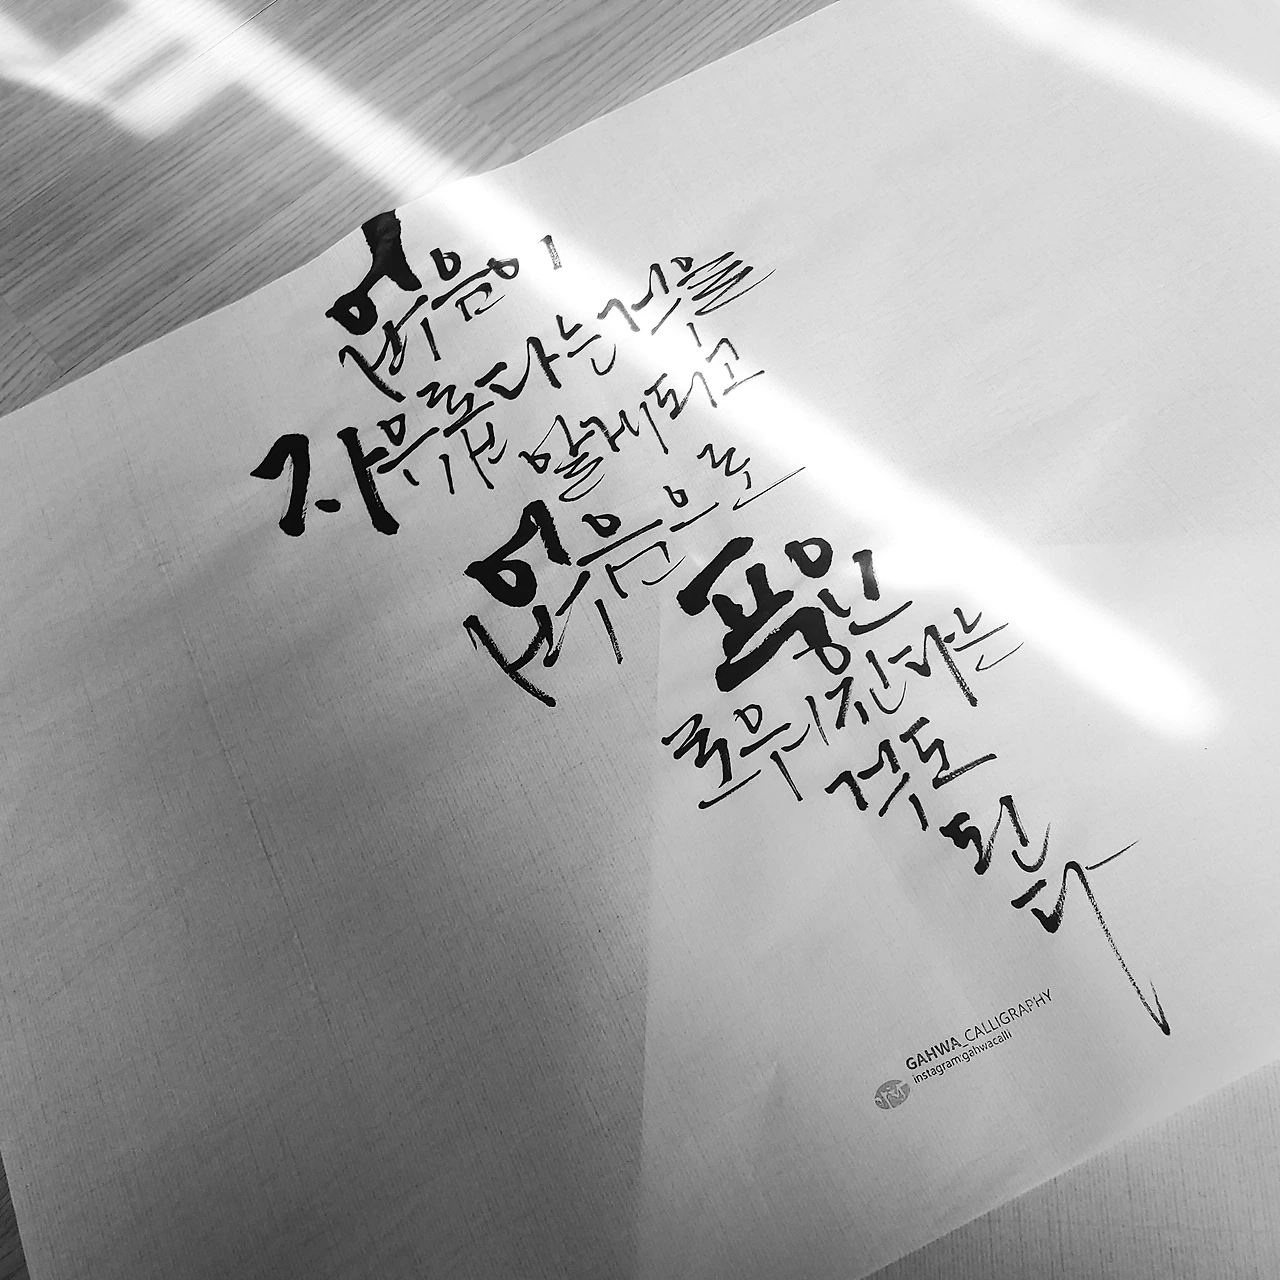 없음이
자유롭다는 것을
알게 되고
없음으로
풍요
로워진다는
것도
된
다
GAHWA_CALLIGRAPHY
instagram:gahwacalli